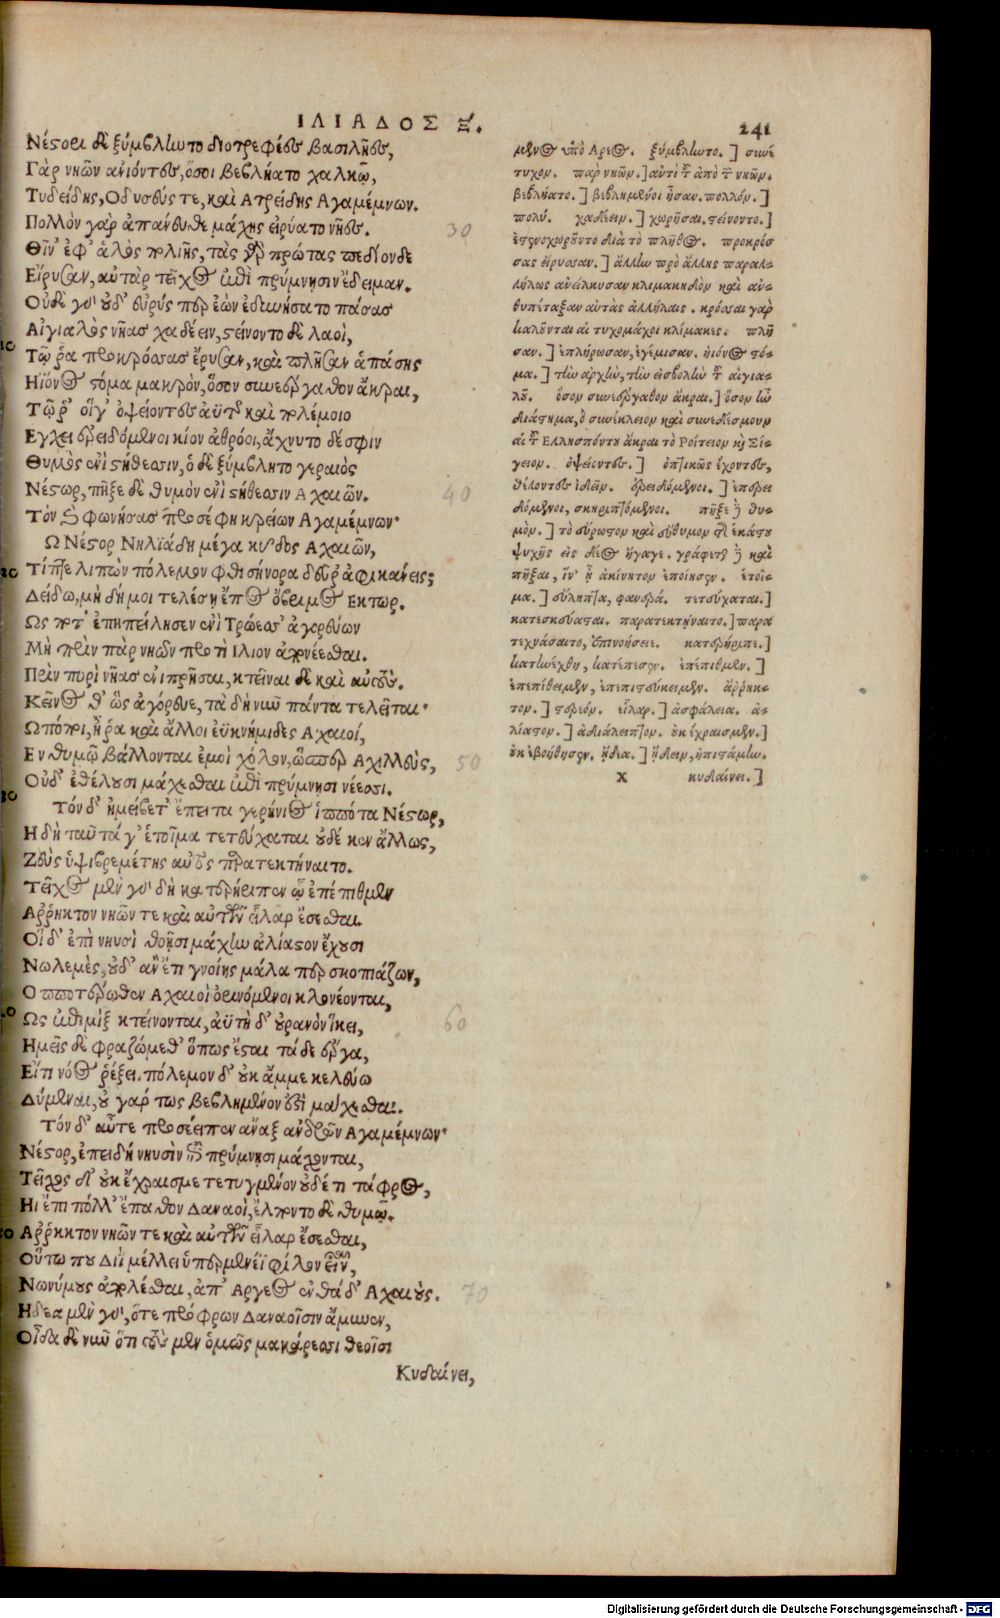 ΙΛΙΑΔΟΣ Ξ.
241
Νέστορι δὲ ξύμβληντο διοτρεφέες βασιλῆες,
Γὰρ νηῶν ἀνιόντες, ὅσοι βεβλήατο χαλκῷ,
Τυδείδης, Οδυσεύς τε, καὶ Ατρείδης Αγαμέμνων.
Πολλὸν γάρ ἀπάνευθε μάχης εἰρύατο νῆες.
30
Θῖν' ἐφ' ἁλὸς πολιῆς, τὰς γὰρ πρώτας πεδίονδε
Εἴρυσαν, αὐτὰρ τεῖχος ἐπὶ πρύμνῃσιν ἔδειμαν.
Οὐδὲ γὰρ οὐδ' εὐρύς περ ἐὼν ἐδυνήσατο πάσας
Αἰγιαλὸς νῆας χαδέειν, στείνοντο δὲ λαοὶ,
10
Τῷ ῥα προκρόσσας ἔρυσαν, καὶ πλῆσαν ἁπάσης
Ηϊόνος στόμα μακρὸν, ὅσον συνεέργαθον ἄκραι,
Τῷ ῥ' οἵ γ' ὀψείοντες ἀϋτῆς καὶ πολέμοιο
Εγχει ἐρειδόμενοι κίον ἀθρόοι, ἄχνυτο δέ σφιν
Θυμὸς ἐνὶ στήθεσσιν, ὁ δὲ ξύμβλητο γεραιὸς
Νέστωρ, πῆξε δὲ θυμὸν ἐνὶ στήθεσσιν Αχαιῶν.
40
Τὸν καὶ φωνήσας προσέφη κρείων Αγαμέμνων·
Ω Νέστορ Νηληϊάδη μέγα κῦδος Αχαιῶν,
20
Τίπτε λιπὼν πόλεμον φθισήνορα δεῦρ' ἀφικάνεις;
Δείδω, μὴ δή μοι τελέσῃ ἔπος ὄβριμος Εκτωρ.
Ως ποτ' ἐπηπείλησεν ἐνὶ Τρώεσσ' ἀγορεύων
Μὴ πρὶν πὰρ νηῶν προτὶ Ιλιον ἀπονέεσθαι.
Πρὶν πυρὶ νῆας ἐνιπρῆσαι, κτεῖναι δὲ καὶ αὐτούς.
Κεῖνος θ' ὣς ἀγόρευε, τὰ δὴ νῦν πάντα τελεῖται·
Ωπόποι, ἦ ῥα καὶ ἄλλοι ἐϋκνήμιδες Αχαιοί,
Εν θυμῷ βάλλονται ἐμοὶ χόλον, ὥσπερ Αχιλλεύς,
50
Οὐδ' ἐθέλουσι μάχεσθαι ἐπὶ πρύμνῃσι νέεσσι.
30
Τόνδ' ἠμείβετ' ἔπειτα γερήνιος ἱππότα Νέστωρ,
Η δὴ ταῦτά γ' ἑτοῖμα τετεύχαται οὐδέ κεν ἄλλως,
Ζεὺς ὑψιβρεμέτης αὐτὸς παρατεκτήναιτο.
Τεῖχος μὲν γὰρ δὴ κατερήριπεν ᾧ ἐπέπιθμεν
Αῤῥηκτον νηῶν τε καὶ αὐτῶν εἶλαρ ἔσεσθαι.
Οἵδ' ἐπὶ νηυσὶ θοῇσι μάχην ἀλίαστον ἔχουσι
Νωλεμὲς, οὐδ' ἂν ἔτι γνοίης μάλα περ σκοπιάζων,
Οπποτέρωθεν Αχαιοὶ ὀρινόμενοι κλονέονται,
40
Ως ἐπιμὶξ κτείνονται, ἀϋτὴ δ' οὐρανὸν ἵκει,
60
Ημεῖς δὲ φραζώμεθ' ὅπως ἔσται τάδε ἔργα,
Εἴ τι νόος ῥέξει. πόλεμον δ' οὐκ ἄμμε κελεύω
Δύμεναι, οὐ γάρ πως βεβλημένον ἐστὶ μάχεσθαι.
Τόνδ' αὖτε προσέειπεν ἄναξ ἀνδρῶν Αγαμέμνων·
Νέστορ, ἐπειδὴ νηυσὶν ἐπὶ πρύμνῃσι μάχονται,
Τεῖχος δ' οὐκ ἔχραισμε τετυγμένον οὐδέ τι τάφρος,
Ηι ἔπι πόλλ' ἔπαθον Δαναοὶ, ἔλποντο δὲ θυμῷ.
50
Αῤῥηκτον νηῶν τε καὶ αὐτῶν εἶλαρ ἔσεσθαι,
Οὕτω που Διῒ μέλλει ὑπερμενέϊ φίλον εἶναι,
Νωνύμους ἀπολέσθαι, ἀπ' Αργεος ἐνθάδ' Αχαιούς.
70
Ηδεα μὲν γὰρ, ὅτε πρόφρων Δαναοῖσιν ἄμυνεν,
Οἶδα δὲ νῦν ὅτι τοὺς μὲν ὁμῶς μακάρεσσι θεοῖσι
Κυδαίνει,
μενος ὑπὸ Αρεος. ξύμβληντο.] συνέ
τυχον. παρ νηῶν.] αὐτὶ τοῦ ἀπὸ τῶν νηῶν.
βεβλήατο.] βεβλημένοι ἦσαν. πολλόν.]
πολύ. χαδέειν.] χωρῆσαι. στείνοντο.]
ἐστενοχωροῦντο διὰ τὸ πλῆθος. προκρόσ
σας εἴρυσαν.] ἄλλην πρὸ ἄλλης παραλ-
λήλως ἀνείλκυσαν κλιμακηδὸν καὶ ἀν-
θυπέταξαν αὐτὰς ἀλλήλαις. κρόσσαι γὰρ
καλοῦνται αἱ τυχομάχοι κλίμακες. πλῆ
σαν.] ἐπλήρωσαν, ἐγέμισαν. ἠϊόνος στό-
μα.] τὴν ἀρχὴν, τὴν εἰσβολὴν τοῦ αἰγια-
λοῦ. ὅσον συνεέργαθον ἄκραι.] ὅσον ἦν
διάστημα, ὃ συνέκλειον καὶ συνεδέσμουν
αἱ τοῦ Ελλησπόντου ἄκραι τὸ Ροίτειον καὶ Σί-
γειον. ὀψείοντες.] ὀπτικῶς ἔχοντες,
θέλοντες ἰδεῖν. ἐρειδόμενοι.] ἐπερει
δόμενοι, σκηριπτόμενοι. πῆξε δὲ θυ-
μὸν.] τὸ εὔρωστον καὶ εὔθυμον τῆς ἑκάστου
ψυχῆς εἰς δέος ἤγαγε. γράφεται δὲ καὶ
πῆξαι, ἵν' ᾖ ἀκίνητον ἐποίησεν. ἑτοῖ-
μα.] εὔληπτα, φανερά. τετεύχαται.]
κατεσκεύασται. παρατεκτήναιτο.] παρα
τεχνάσαιτο, ἐπινοήσειε. κατερήριπε.]
κατηνέχθη, κατέπεσεν. ἐπέπιθμεν.]
ἐπεπίθειμεν, ἐπεπιστεύκειμεν. ἄῤῥηκ-
τον.] στερεόν. εἶλαρ.] ἀσφάλεια. ἀ-
λίαστον.] ἀδιάλειπτον. οὐκ ἔχραισμεν.]
οὐκ ἐβοήθησεν. ᾔδεα.] ᾔδειν, ἠπιστάμην.
X κυδαίνει.]
Digitalisierung gefördert durch die Deutsche Forschungsgemeinschaft - DFG